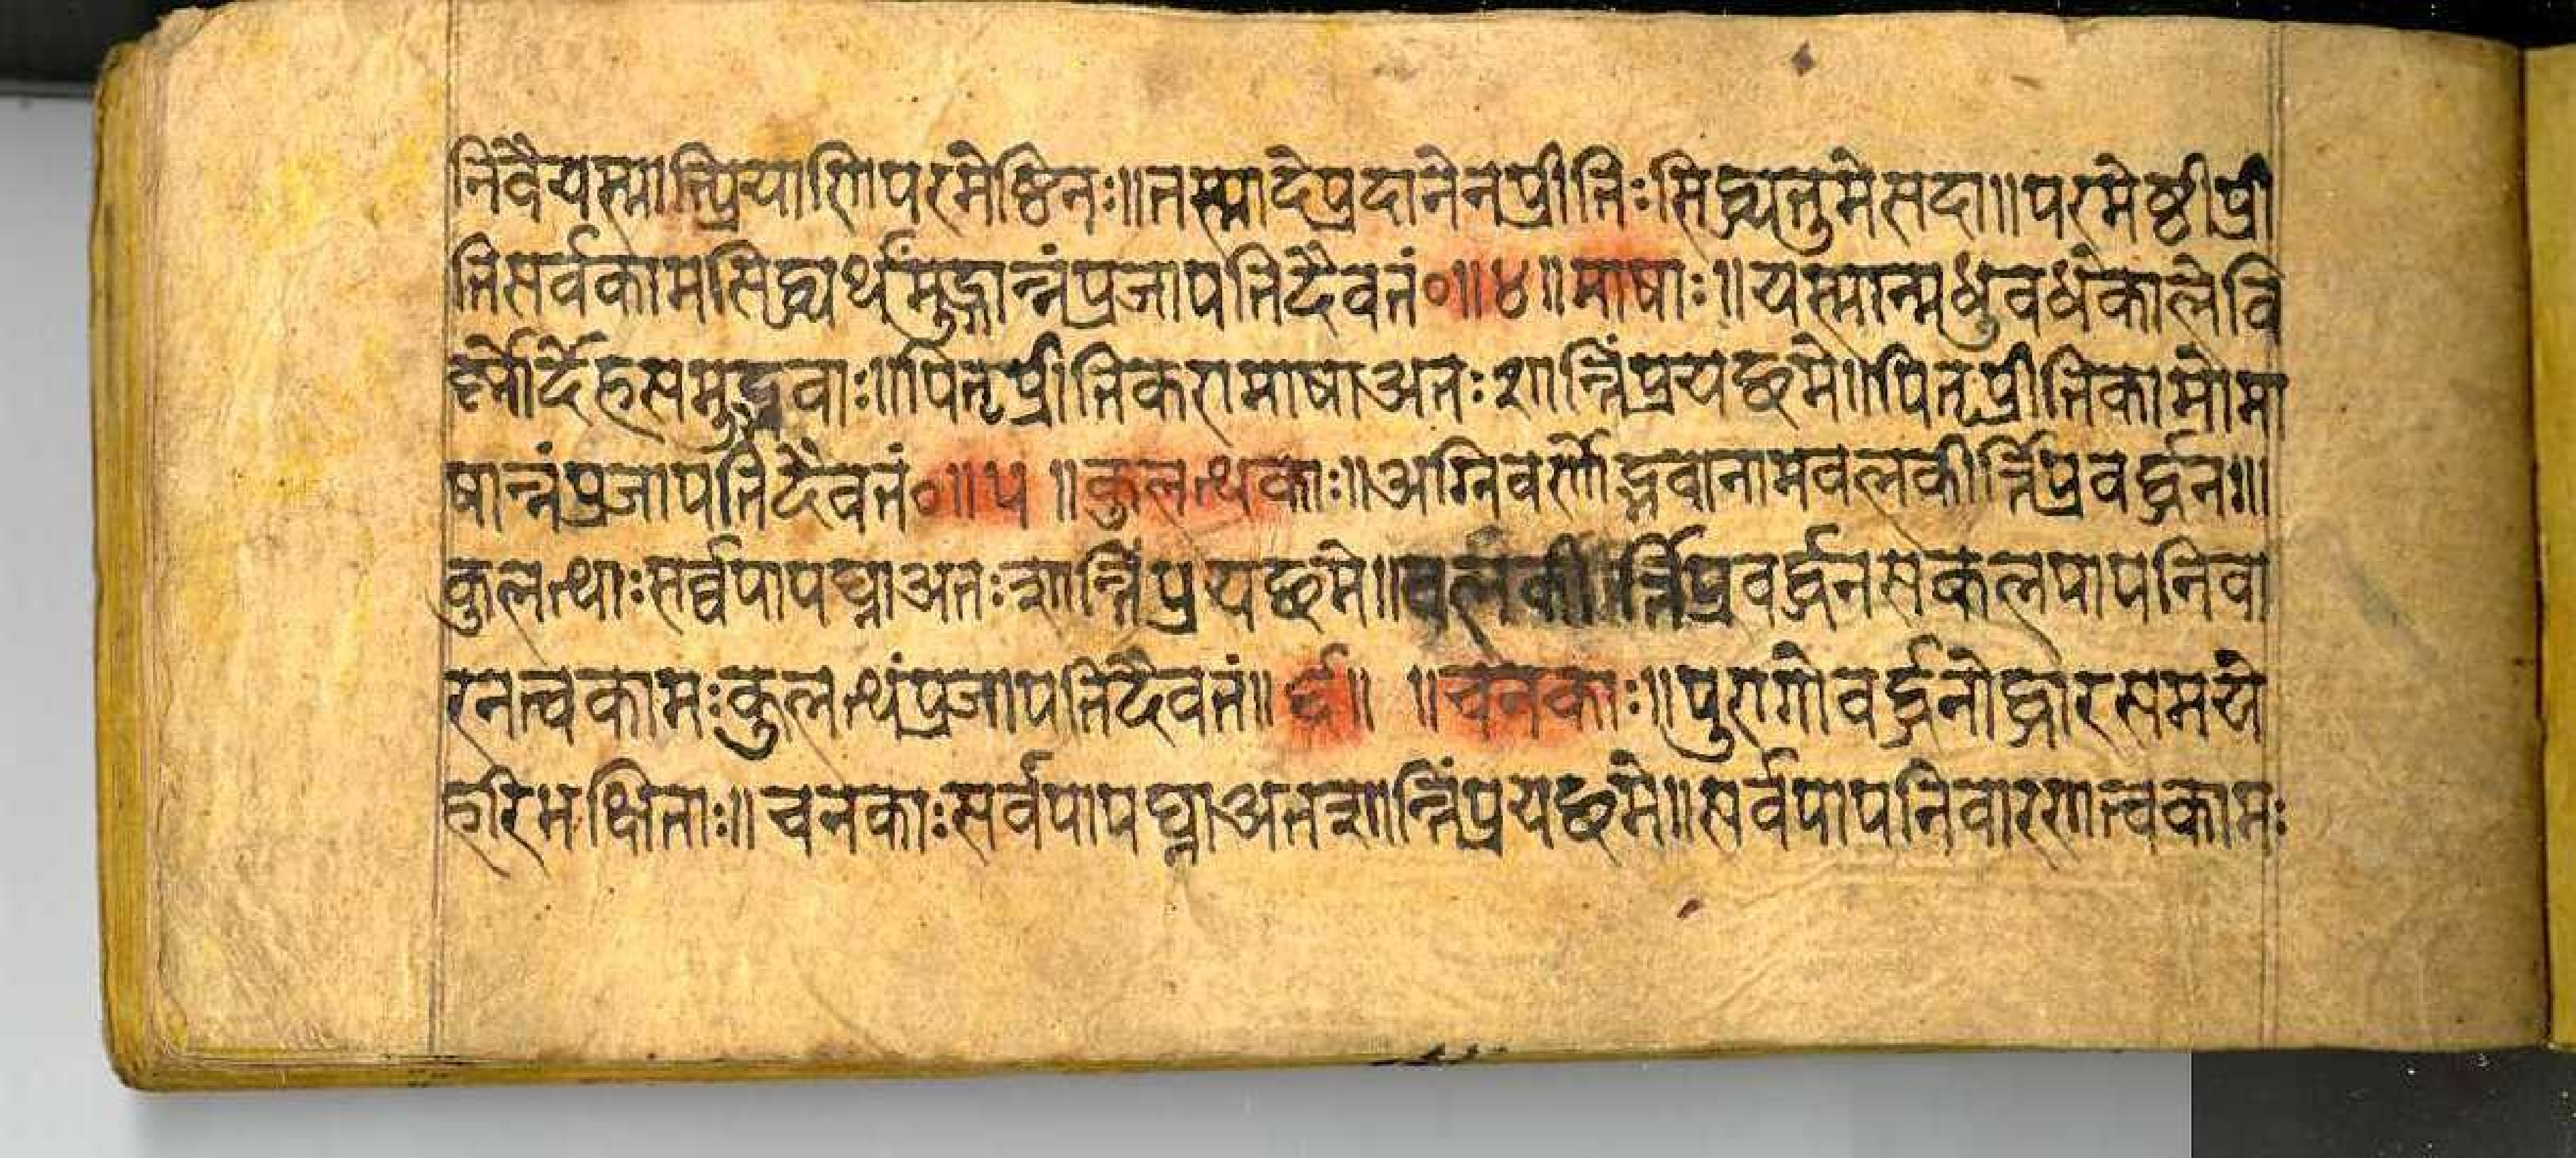 निवैयस्मात्प्रियाणिपरमेष्ठिनः॥तस्मादेप्रदानेनप्रीतिःसिद्ध्यतुमेसदा॥परमेष्ठीप्री
तिसर्वकामसिद्ध्यर्थंमुद्गान्नंप्रजापतिदैवतं०॥४॥माषाः॥यस्मान्मधुवधेकालेवि
र्ष्णोर्देहसमुद्भवाः॥पितृप्रीतिकरामाषाअतःशान्तिंप्रयछमे॥पितृप्रीतिकामोमा
षान्नंप्रजापतिदैवतं०॥५॥कुलत्थकाः॥अग्निवर्णोद्भवानामवलकीर्त्तिप्रवर्द्धनः॥
कुलत्थाःसर्व्वपापघ्नाअतःशान्तिंप्रयछमे॥वलकीर्त्तिप्रवर्द्धनसकलपापनिवा
रनत्वकामःकुलत्थंप्रजापतिदैवतं॥६॥ ॥चनकाः॥पुरागोवर्द्धनोद्धारसमये
हरिभक्षिताः॥चनकाःसर्वपापघ्नाअतशान्तिंप्रयछमे॥सर्वपापनिवारणत्वकामः